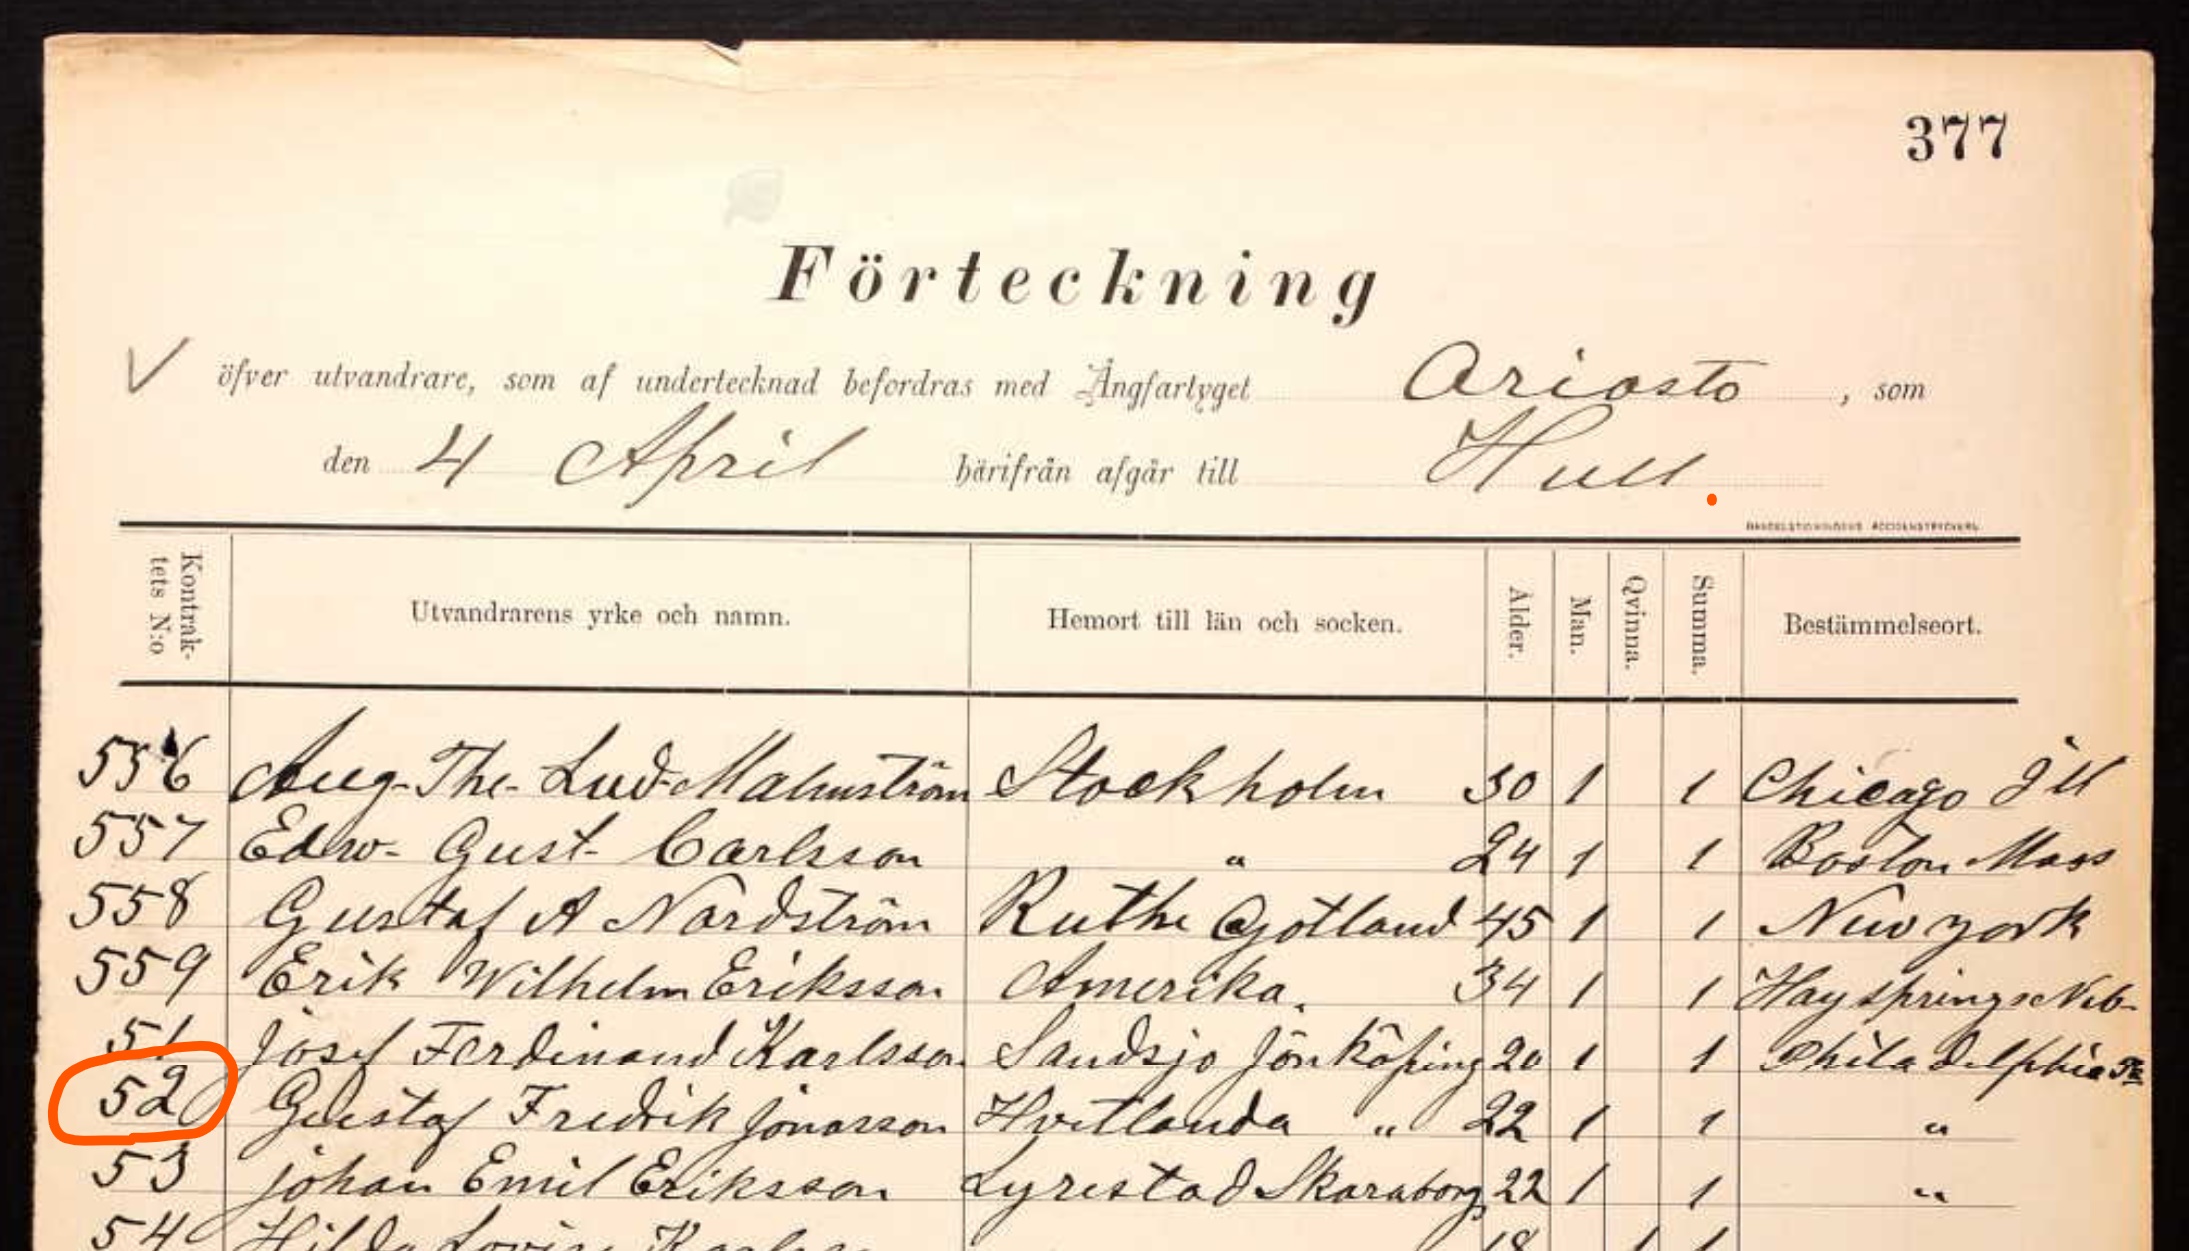 377
Förteckning
öfver utvandrare, som af undertecknad befordras med Ångfartyget Ariosto, som
den 4 April härifrån afgår till Hull.
Kontraktets N:o Utvandrarens yrke och namn. Hemort till län och socken. Ålder. Man. Qvinna. Summa. Bestämmelseort.
556 Aug- The- Lud- Malmström Stockholm 30 1 1 Chicago Ill
557 Edw- Gust- Carlsson " 24 1 1 Boston Mass
558 Gustaf A Nordström Ruthe Gotland 45 1 1 New york
559 Erik Wilhelm Eriksson Amerika. 34 1 1 Haysprings Neb-
51 Josef Ferdinand Karlsson Sandsjo Jönköping 20 1 1 Philadelphia Pa
52 Gustaf Fredrik Jonasson Hvetlanda " 22 1 1 "
53 Johan Emil Eriksson Lyrestad Skaraborg 22 1 1 "
54 Hilda 18 1 1